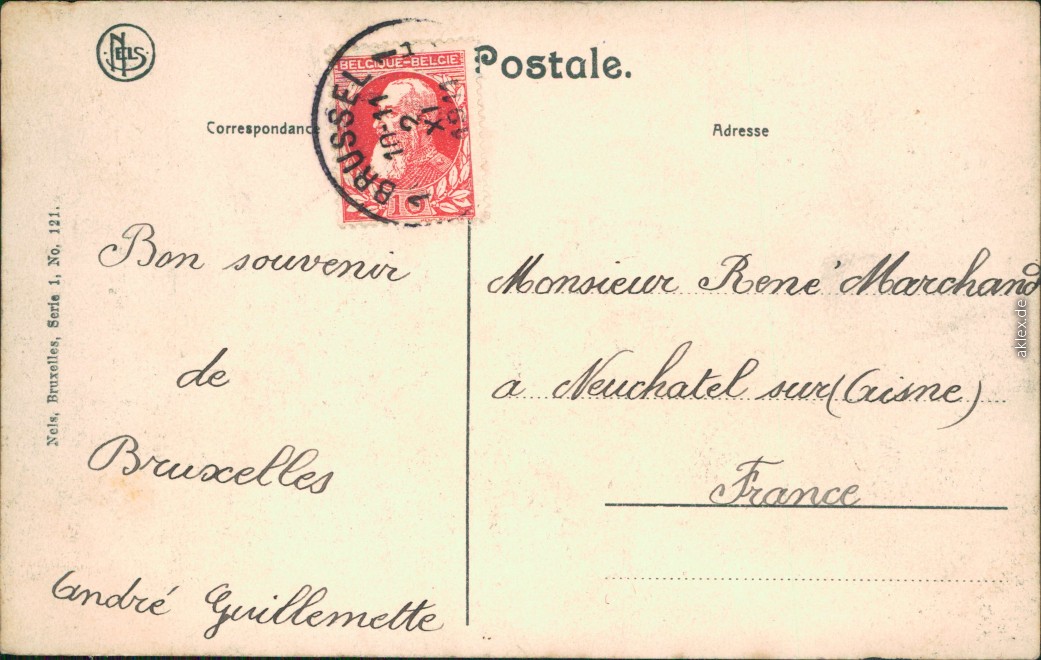 NELS
Postale.
BELGIQUE-BELGIE
BRUSSEL 1
10-11
2
XI
10
Correspondance
Adresse
Nels, Bruxelles, Serie 1, No. 121.
Bon souvenir
de
Bruxelles
André Guillemette
Monsieur René Marchand
a Neuchatel sur (Aisne)
France
aklex.de